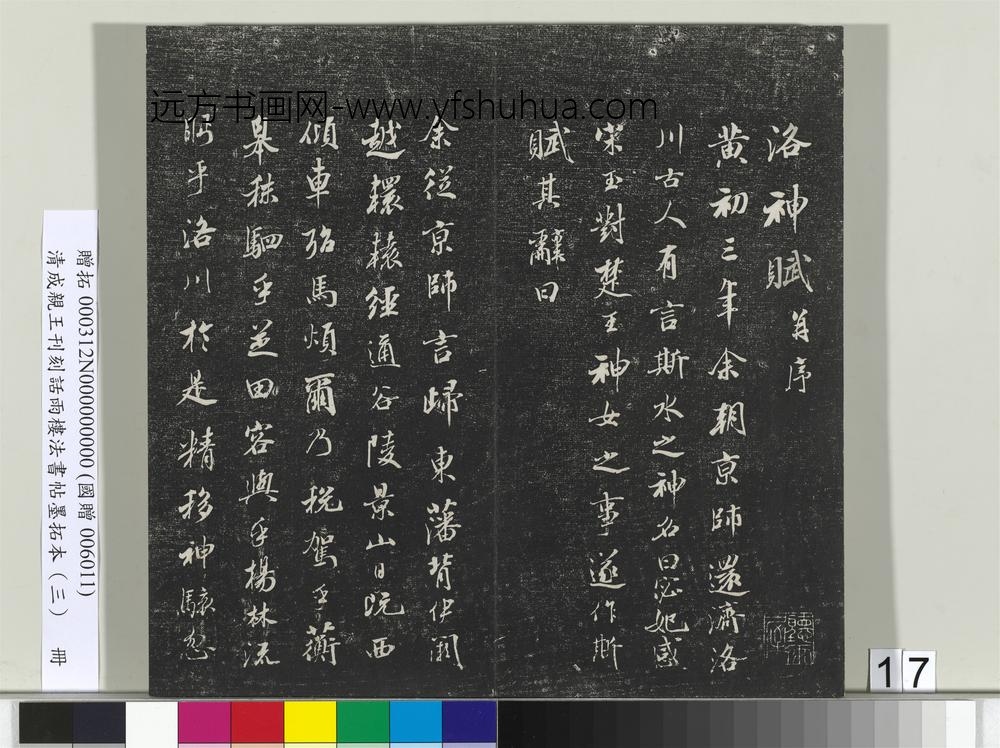 洛神賦并序
黃初三年余朝京師還濟洛
川古人有言斯水之神名曰宓妃感
宋玉對楚王神女之事遂作斯
賦其辭曰
余從京師言歸東藩背伊闕
越轘轅經通谷陵景山日既西
傾車殆馬煩爾乃稅駕乎蘅
皋秣駟乎芝田容與乎楊林流
眄乎洛川於是精移神駭忽
远方书画网-www.yfshuhua.com
贈拓 000312N000000000(國贈 006011)
清成親王刊刻話雨樓法書帖墨拓本（三） 冊
17